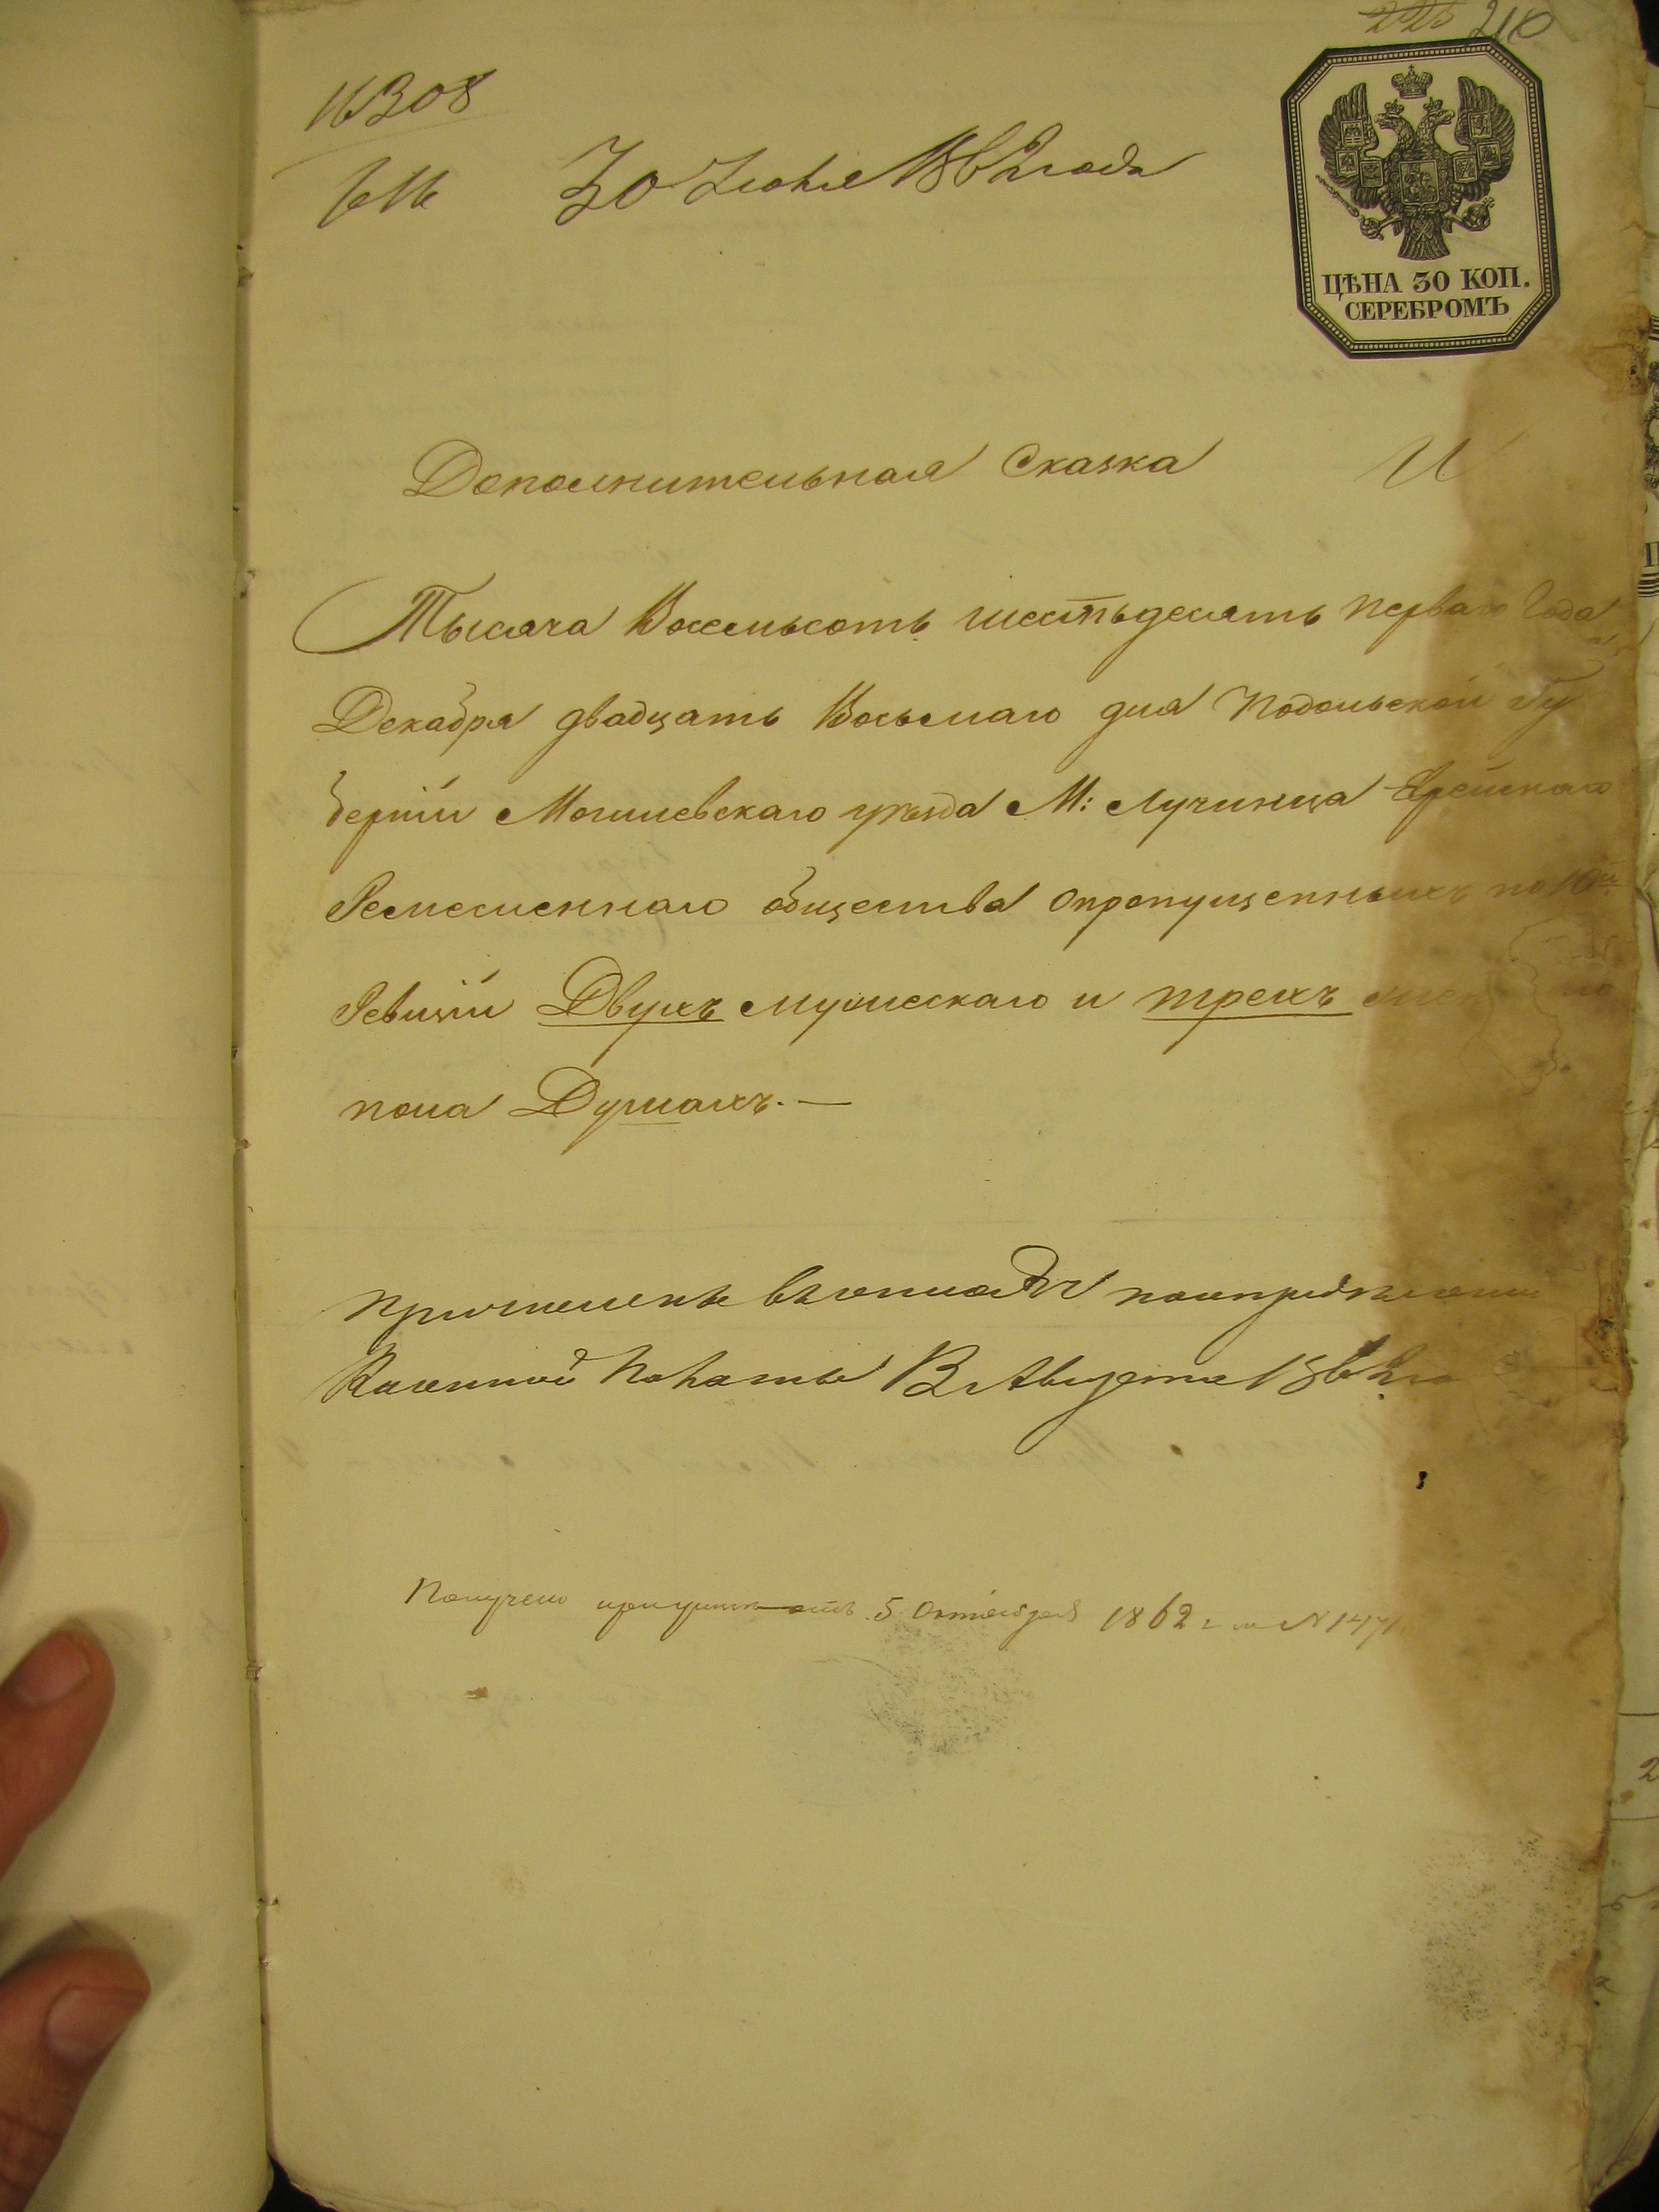 210
16308
30 Июня 1862 года
ЦѢНА 30 КОП.
СЕРЕБРОМЪ
Дополнительная Сказка
Тысяча Восемьсотъ шестьдесятъ перваго Года
Декабря двадцать Восьмаго дня Подольской Гу
берніи Могилевскаго уѣзда М: Лучинца Еврейскаго
Ремесленнаго общества опропущенныхъ по 10й
Ревизіи Двухъ мужескаго и трехъ
пола Душахъ. —
Причислены въ окладъ
Казенной Палаты Августа 1862
Получено 5 Октября 1862 г